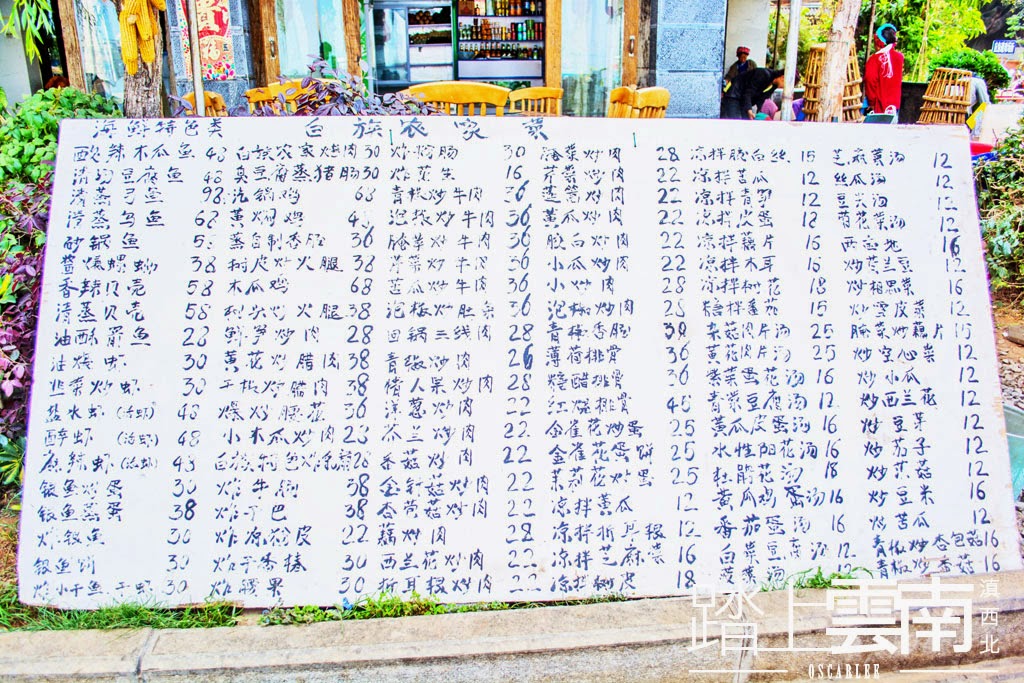 海鲜特色菜
白族农家菜
酸辣木瓜鱼 48 白族农家烤肉 30 30 腌菜炒肉 28 凉拌 15 芝麻菜汤 12
48 臭豆腐蒸猪肠 30 炸花生 16 芹菜炒肉 22 凉拌苦瓜 12 丝瓜汤 12
清蒸弓鱼 98 汽锅鸡 68 青椒炒牛肉 36 蓬蒿炒肉 22 凉拌青 12 豆尖汤 12
清蒸乌鱼 68 黄焖鸡 泡椒炒牛肉 36 黄瓜炒肉 22 凉拌皮蛋 18 菊花菜汤 12
砂锅鱼 蒸自制香肠 36 腌菜炒牛肉 36 炒肉 22 凉拌藕片 15 16
酱爆螺蛳 38 树皮炒火腿 38 芹菜炒牛肉 36 小瓜炒肉 22 凉拌木耳 炒荷兰豆 12
香辣贝壳 58 木瓜鸡 68 苦瓜炒牛肉 36 小炒肉 28 凉拌树花 18 炒 16
清蒸贝壳 58 炒火腿 38 泡椒炒肚条 36 泡椒炒肉 28 糖拌番茄 15 炒 12
油酥 鱼 28 鲜笋炒肉 28 回锅三线肉 28 青椒香肠 30 杂菇肉片汤 25 腌菜炒藕片 15
油爆虾 30 黄花炒腊肉 38 青椒炒肉 26 薄荷排骨 36 黄花肉片汤 25 炒空心菜 12
韭菜炒虾 30 干椒炒腊肉 38 炒肉 28 糖醋排骨 36 紫菜蛋花汤 16 炒小瓜 12
盐水虾(活虾) 48 爆炒腰花 36 洋葱炒肉 22 红烧排骨 45 青菜豆腐汤 12 炒西兰花 12
醉虾(活虾) 48 小木瓜炒肉 28 芥兰炒肉 22 金雀花炒蛋 25 黄瓜皮蛋汤 16 炒豆芽 12
麻辣虾(活虾) 48 白族特色炸乳扇 28 茶菇炒肉 22 金雀花蛋饼 25 水性阳花汤 16 炒茄子 12
银鱼炒蛋 30 炸牛 38 金针菇炒肉 22 茉莉花炒蛋 25 杜鹃花汤 18 炒 12
银鱼蒸蛋 38 炸干巴 38 杏香菇炒肉 22 凉拌苦瓜 12 黄瓜鸡蛋汤 16 炒豆米 16
炸银鱼 30 炸凉粉皮 22 藕炒肉 28 凉拌折耳根 12 番茄蛋汤 16 炒苦瓜 12
银鱼 30 炸干香椿 30 西兰花炒肉 22 凉拌芝麻菜 16 白菜豆腐汤 12 青椒炒杏包菇 16
炸小干鱼、干虾 30 炸腰果 30 折耳根炒肉 22 凉拌 18 菠菜汤 12 青椒炒香菇 16
踏上雲南
滇西北
OSCARLEE